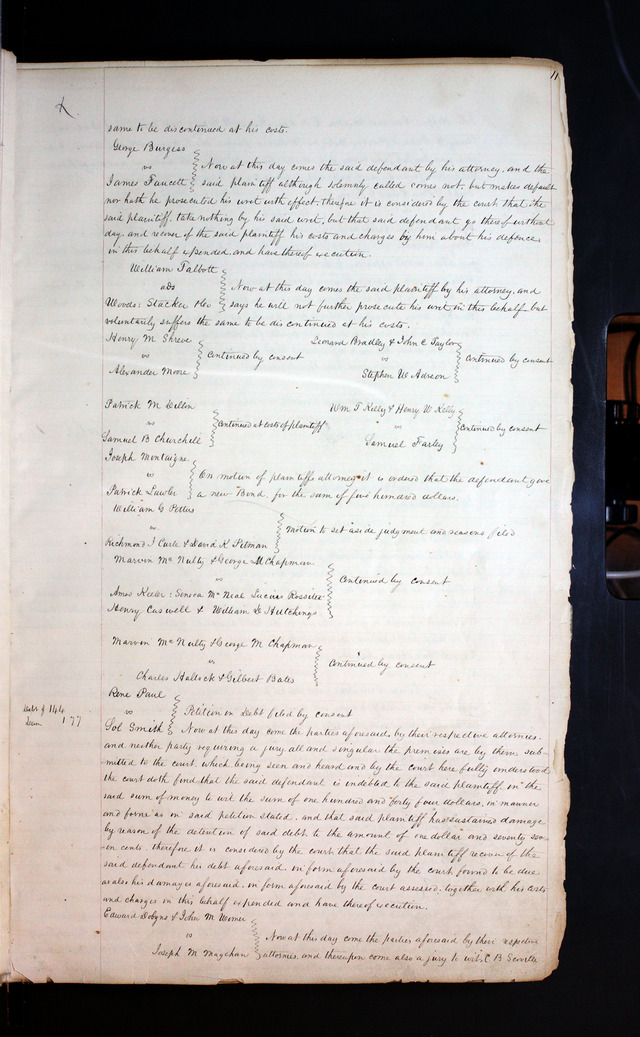 11
same to be discontinued at his costs.
George Burgess
vs
James Faucett
Now at this day comes the said defendant by his attorney, and the
said plaintiff although solemnly called comes not, but makes default
nor hath he prosecuted his writ with effect, therefore it is considered by the court that the
said plaintiff, take nothing by his said writ, but that said defendant go thereof without
day, and recover of the said plaintiff his costs and charges by him about his defence
in this behalf expended, and have thereof execution.
William Talbott
ads
Woods: Stacker &co
Now at this day comes the said plaintiff by his attorney, and
says he will not further prosecute his writ in this behalf but
voluntarily suffers the same to be discontinued at his costs.
Henry M Shreve
vs
Alexander Moore
Continued by consent
Leonard Bradley & John C Taylor
vs
Stephen W Adreon
Continued by consent
Patrick M Dillin
vs
Samuel B Churchill
Continued at costs of plaintiff
Wm T Kelly & Henry W Kelly
vs
Samuel Farley
Continued by consent
Joseph Montaigne
vs
Patrick Lawler
On motion of plaintiffs attorney it is ordered that the defendant give
a new Bond, for the sum of five hundred dollars.
William G Pettus
vs
Richmond J Curle & David K Pitman
Motion to set aside judgment and reasons filed
Marvin Mc Nulty & George M Chapman
vs
Amos Keeler: Seneca Mc Neal Lucius Rossiter
Henry Caswell & William D Hutchings
Continued by consent
Marvin Mc Nulty & George M Chapman
vs
Charles Hallock & Gilbert Bates
Continued by consent
Debt $ 144
Dam 1 77
Rene Paul
vs
Sol Smith
Petition in Debt filed by consent
Now at this day come the parties aforesaid, by their respective attornies.
and neither party requiring a jury all and singular the premises are by them sub-
mitted to the court, which being seen and heard and by the court here fully understood
the court doth find that the said defendant is indebted to the said plaintiff in the
said sum of money to wit the sum of one hundred and forty four dollars, in manner
and form as in said petition stated, and that said plaintiff has sustained damage
by reason of the detention of said debt to the amount of one dollar and seventy sev-
en cents. therefore it is considered by the court that the said plaintiff recover of the
said defendant his debt aforesaid, in form aforesaid by the court found to be due
as also his damages aforesaid, in form aforesaid by the court assessed, together with his costs
and charges in this behalf expended and have thereof execution.
Edward Dobyns & John M Womer
vs
Joseph M Maychan
Now at this day come the parties aforesaid by their respective
attornies. and thereupon come also a jury to wit, C B Scoville